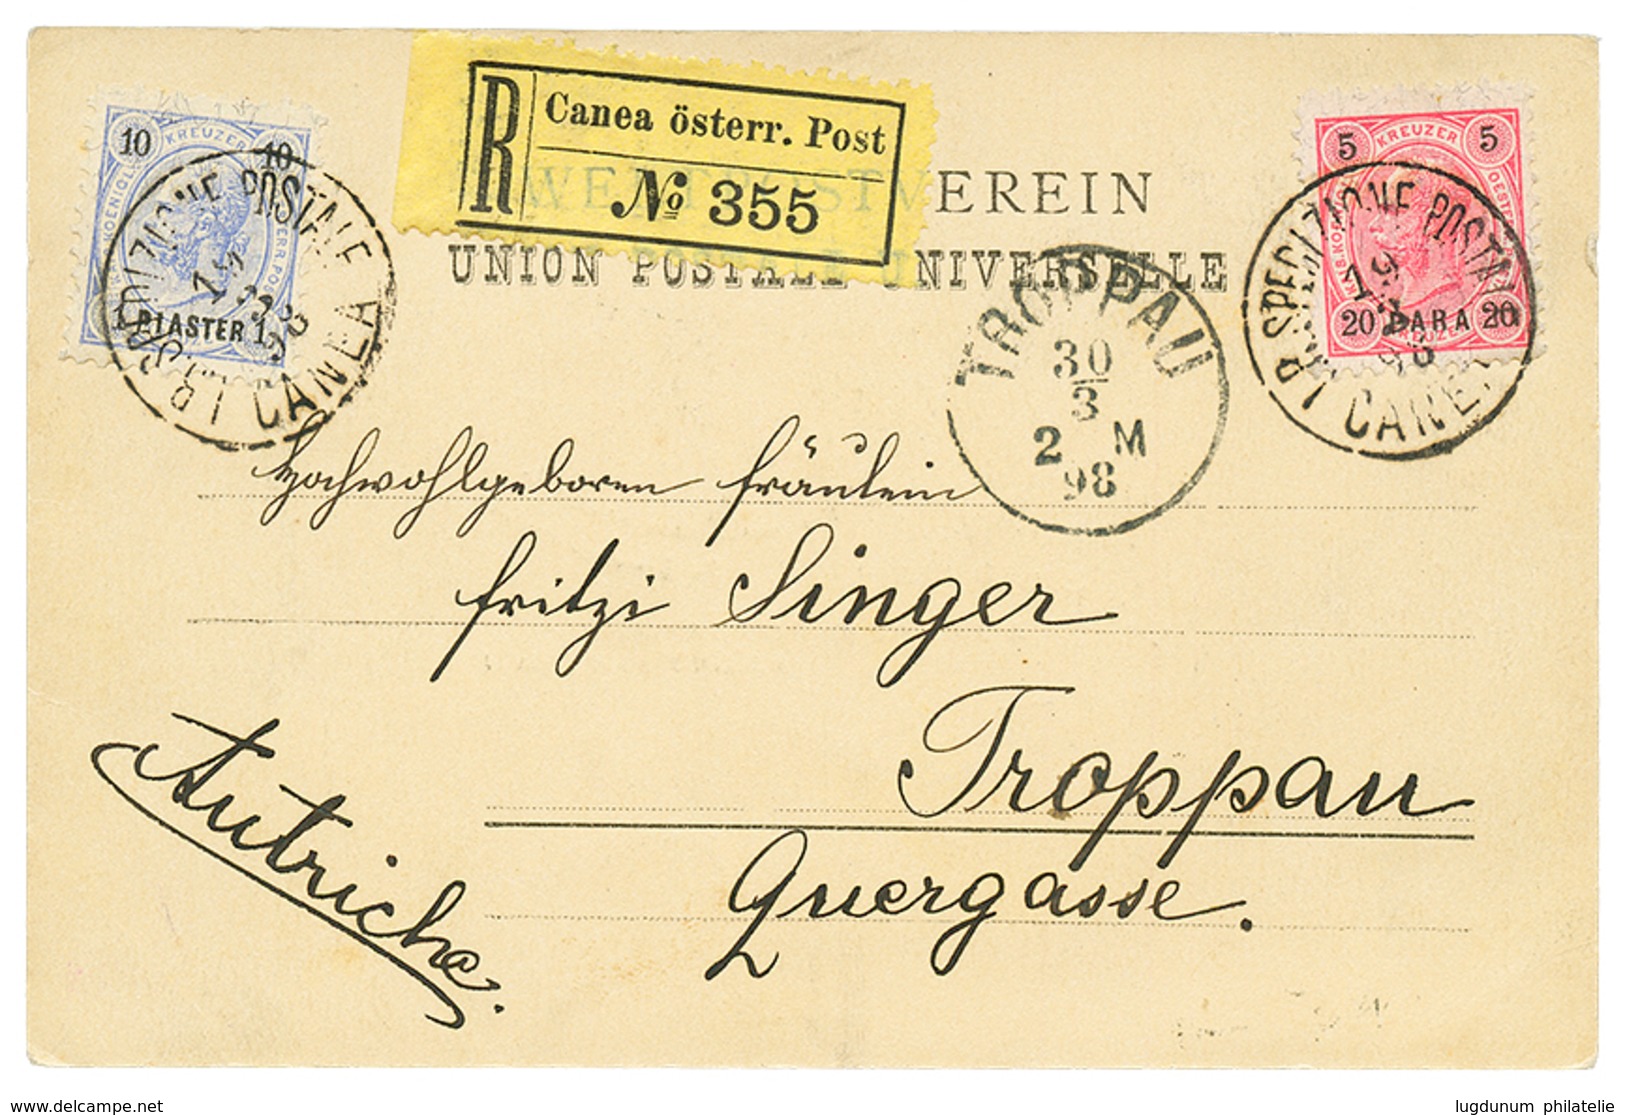 R
Canea österr. Post
No 355
WELTPOSTVEREIN
UNION POSTALE UNIVERSELLE
10 KREUZER 10
1 PIASTER 1
I.R. SPEDIZIONE POSTALE
CANEA
5 KREUZER 5
20 PARA 20
I.R. SPEDIZIONE POSTALE
CANEA
TROPPAU
30
3
2 M
98
Hochwohlgeboren Fräulein
Fritzi Singer
Troppau
Quergasse.
Autriche.
www.delcampe.net
lugdunum philatelie